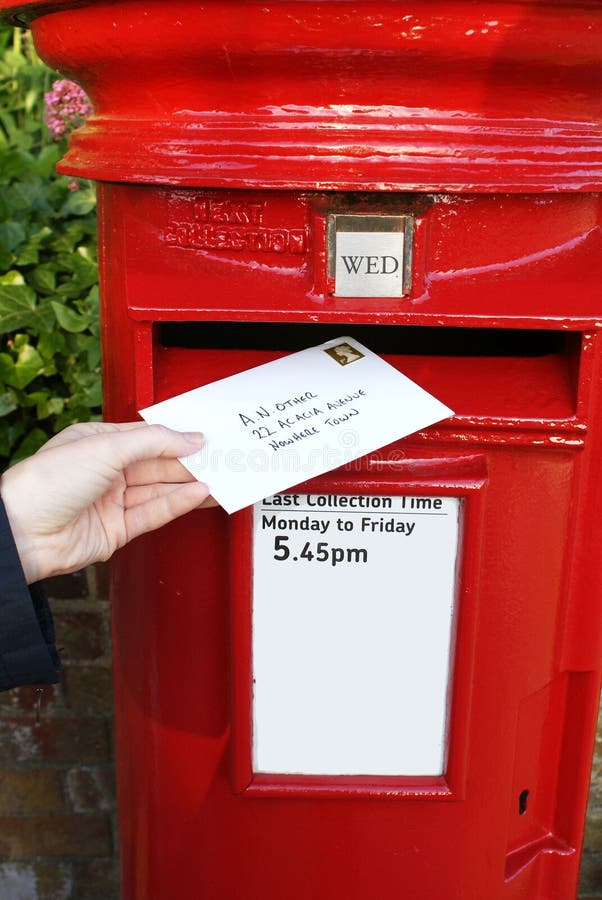 NEXT
COLLECTION
WED
A.N. OTHER
22 ACACIA AVENUE
NOWHERE TOWN
Last Collection Time
Monday to Friday
5.45pm